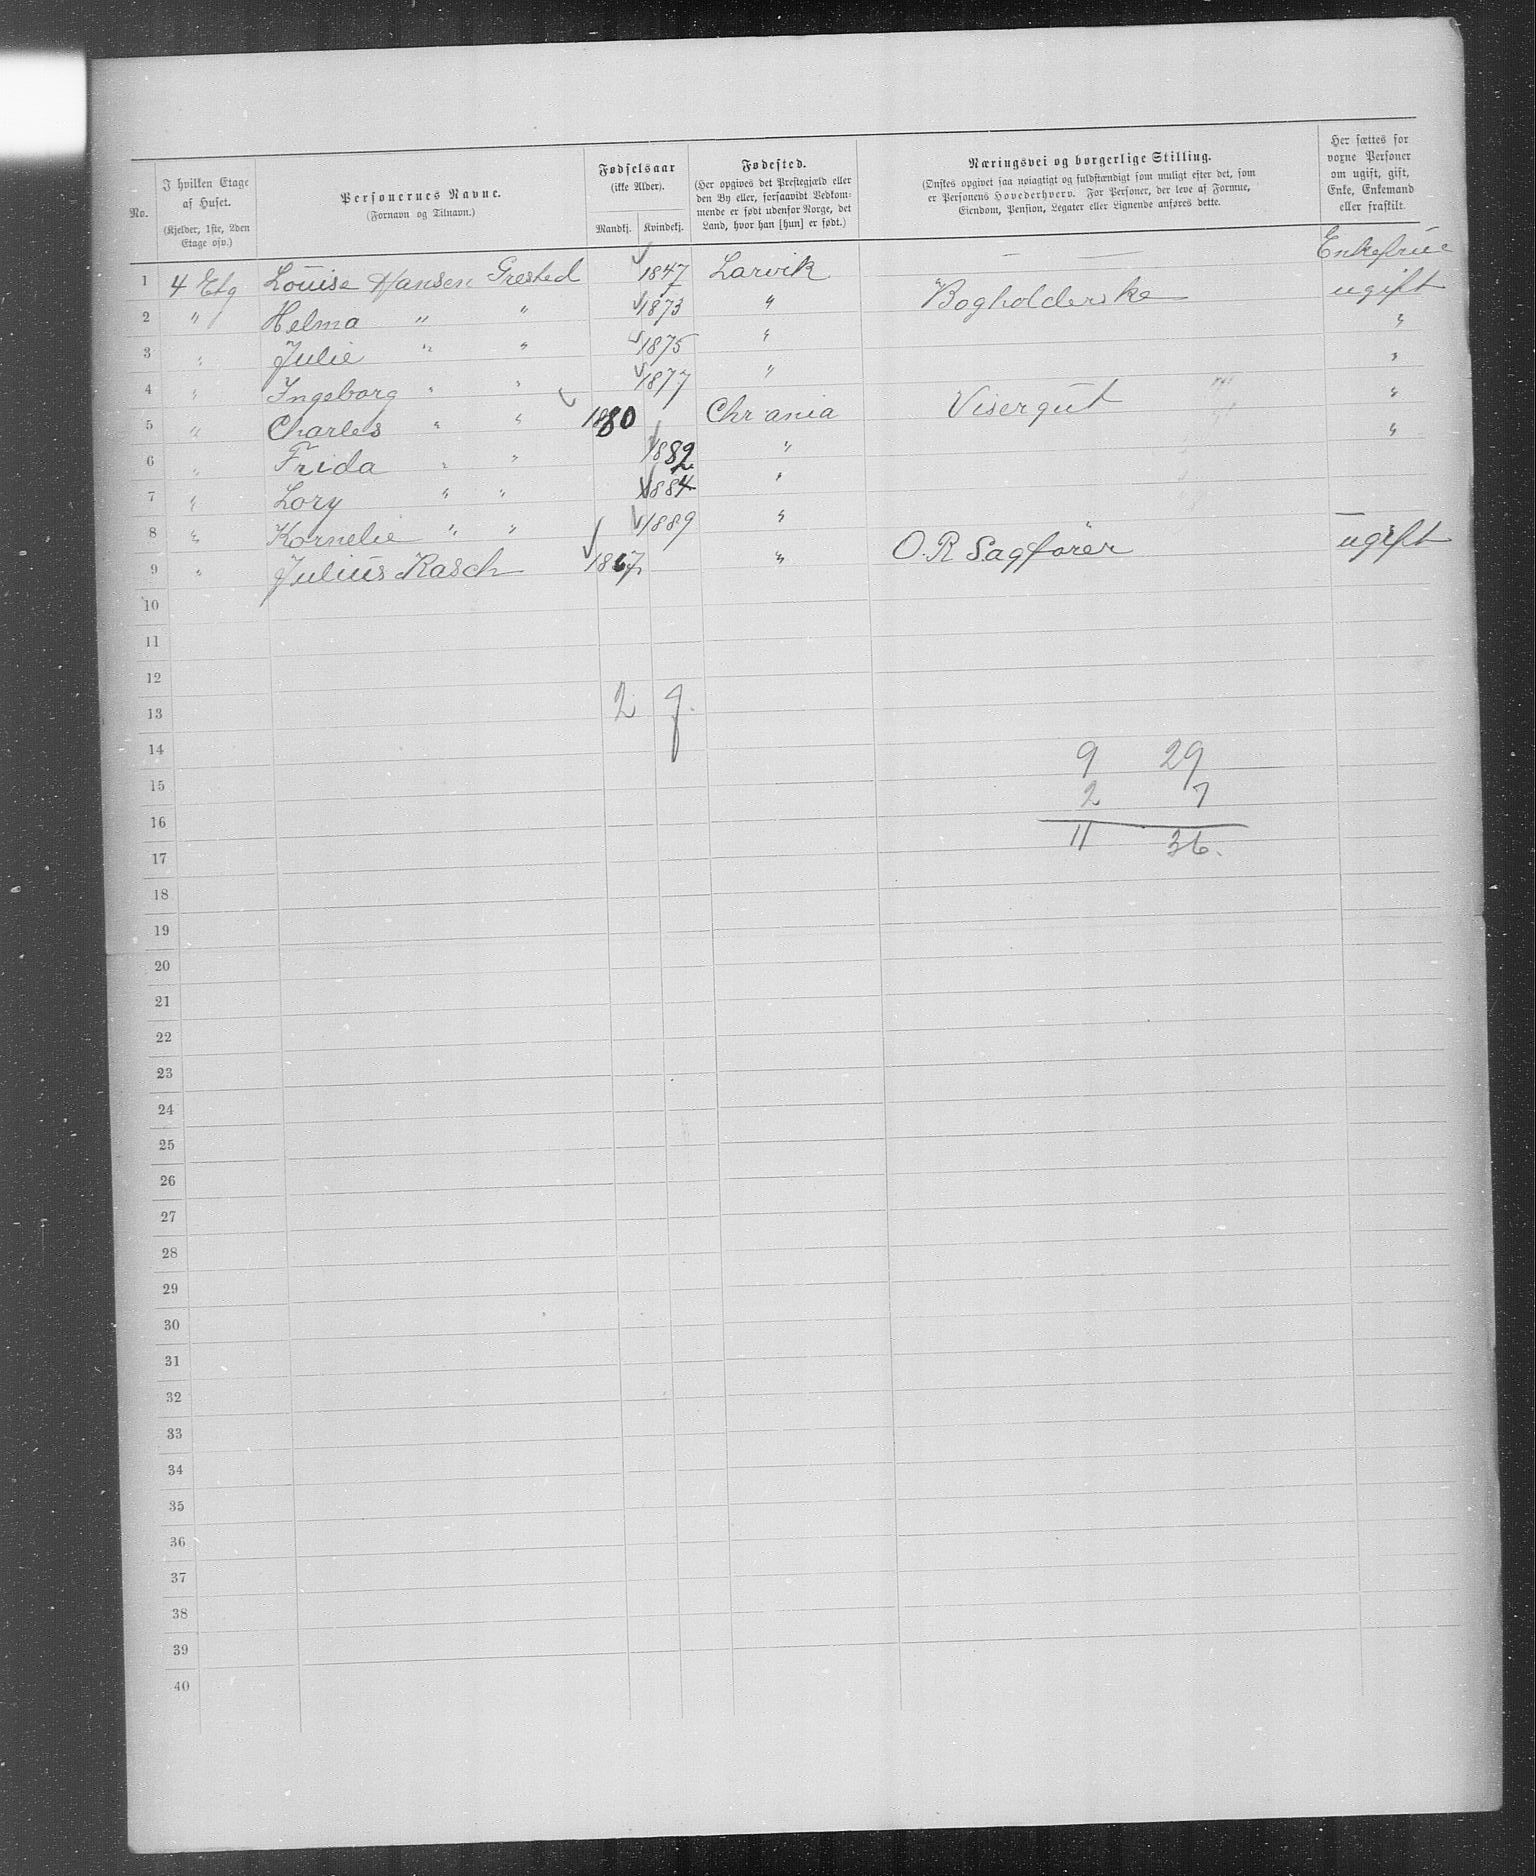 No. | I hvilken Etage af Huset. (Kjelder, 1ste, 2den Etage osv.) | Personernes Navne. (Fornavn og Tilnavn.) | Fødselsaar (ikke Alder). Mandkj. | Kvindekj. | Fødested. (Her opgives det Prestegjæld eller den By eller, forsaavidt Vedkommende er født udenfor Norge, det Land, hvor han [hun] er født.) | Næringsvei og borgerlige Stilling. (Ønskes opgivet saa nøiagtigt og fuldstændigt som muligt efter det, som er Personens Hovederhverv. For Personer, der leve af Formue, Eiendom, Pension, Legater eller Lignende anføres dette. | Her sættes for voxne Personer om ugift, gift, Enke, Enkemand eller fraskilt.
1 4 Etg Louise Hansen Grested 1847 Larvik — — Enkefrue
2 " Helma " " 1873 " Bogholderske ugift
3 " Julie " " 1875 " "
4 " Ingeborg " " 1877 " "
5 " Charles " " 1880 Chrania Visergut "
6 " Frida " " 1882 " "
7 " Lory " " 1884 "
8 " Kornelie " " 1889 " —
9 " Julius Rasch 1867 " O. R Sagfører ugift
10
11
12
13 2 7.
14
9 29
15
2 7
16
11 36.
17
18
19
20
21
22
23
24
25
26
27
28
29
30
31
32
33
34
35
36
37
38
39
40